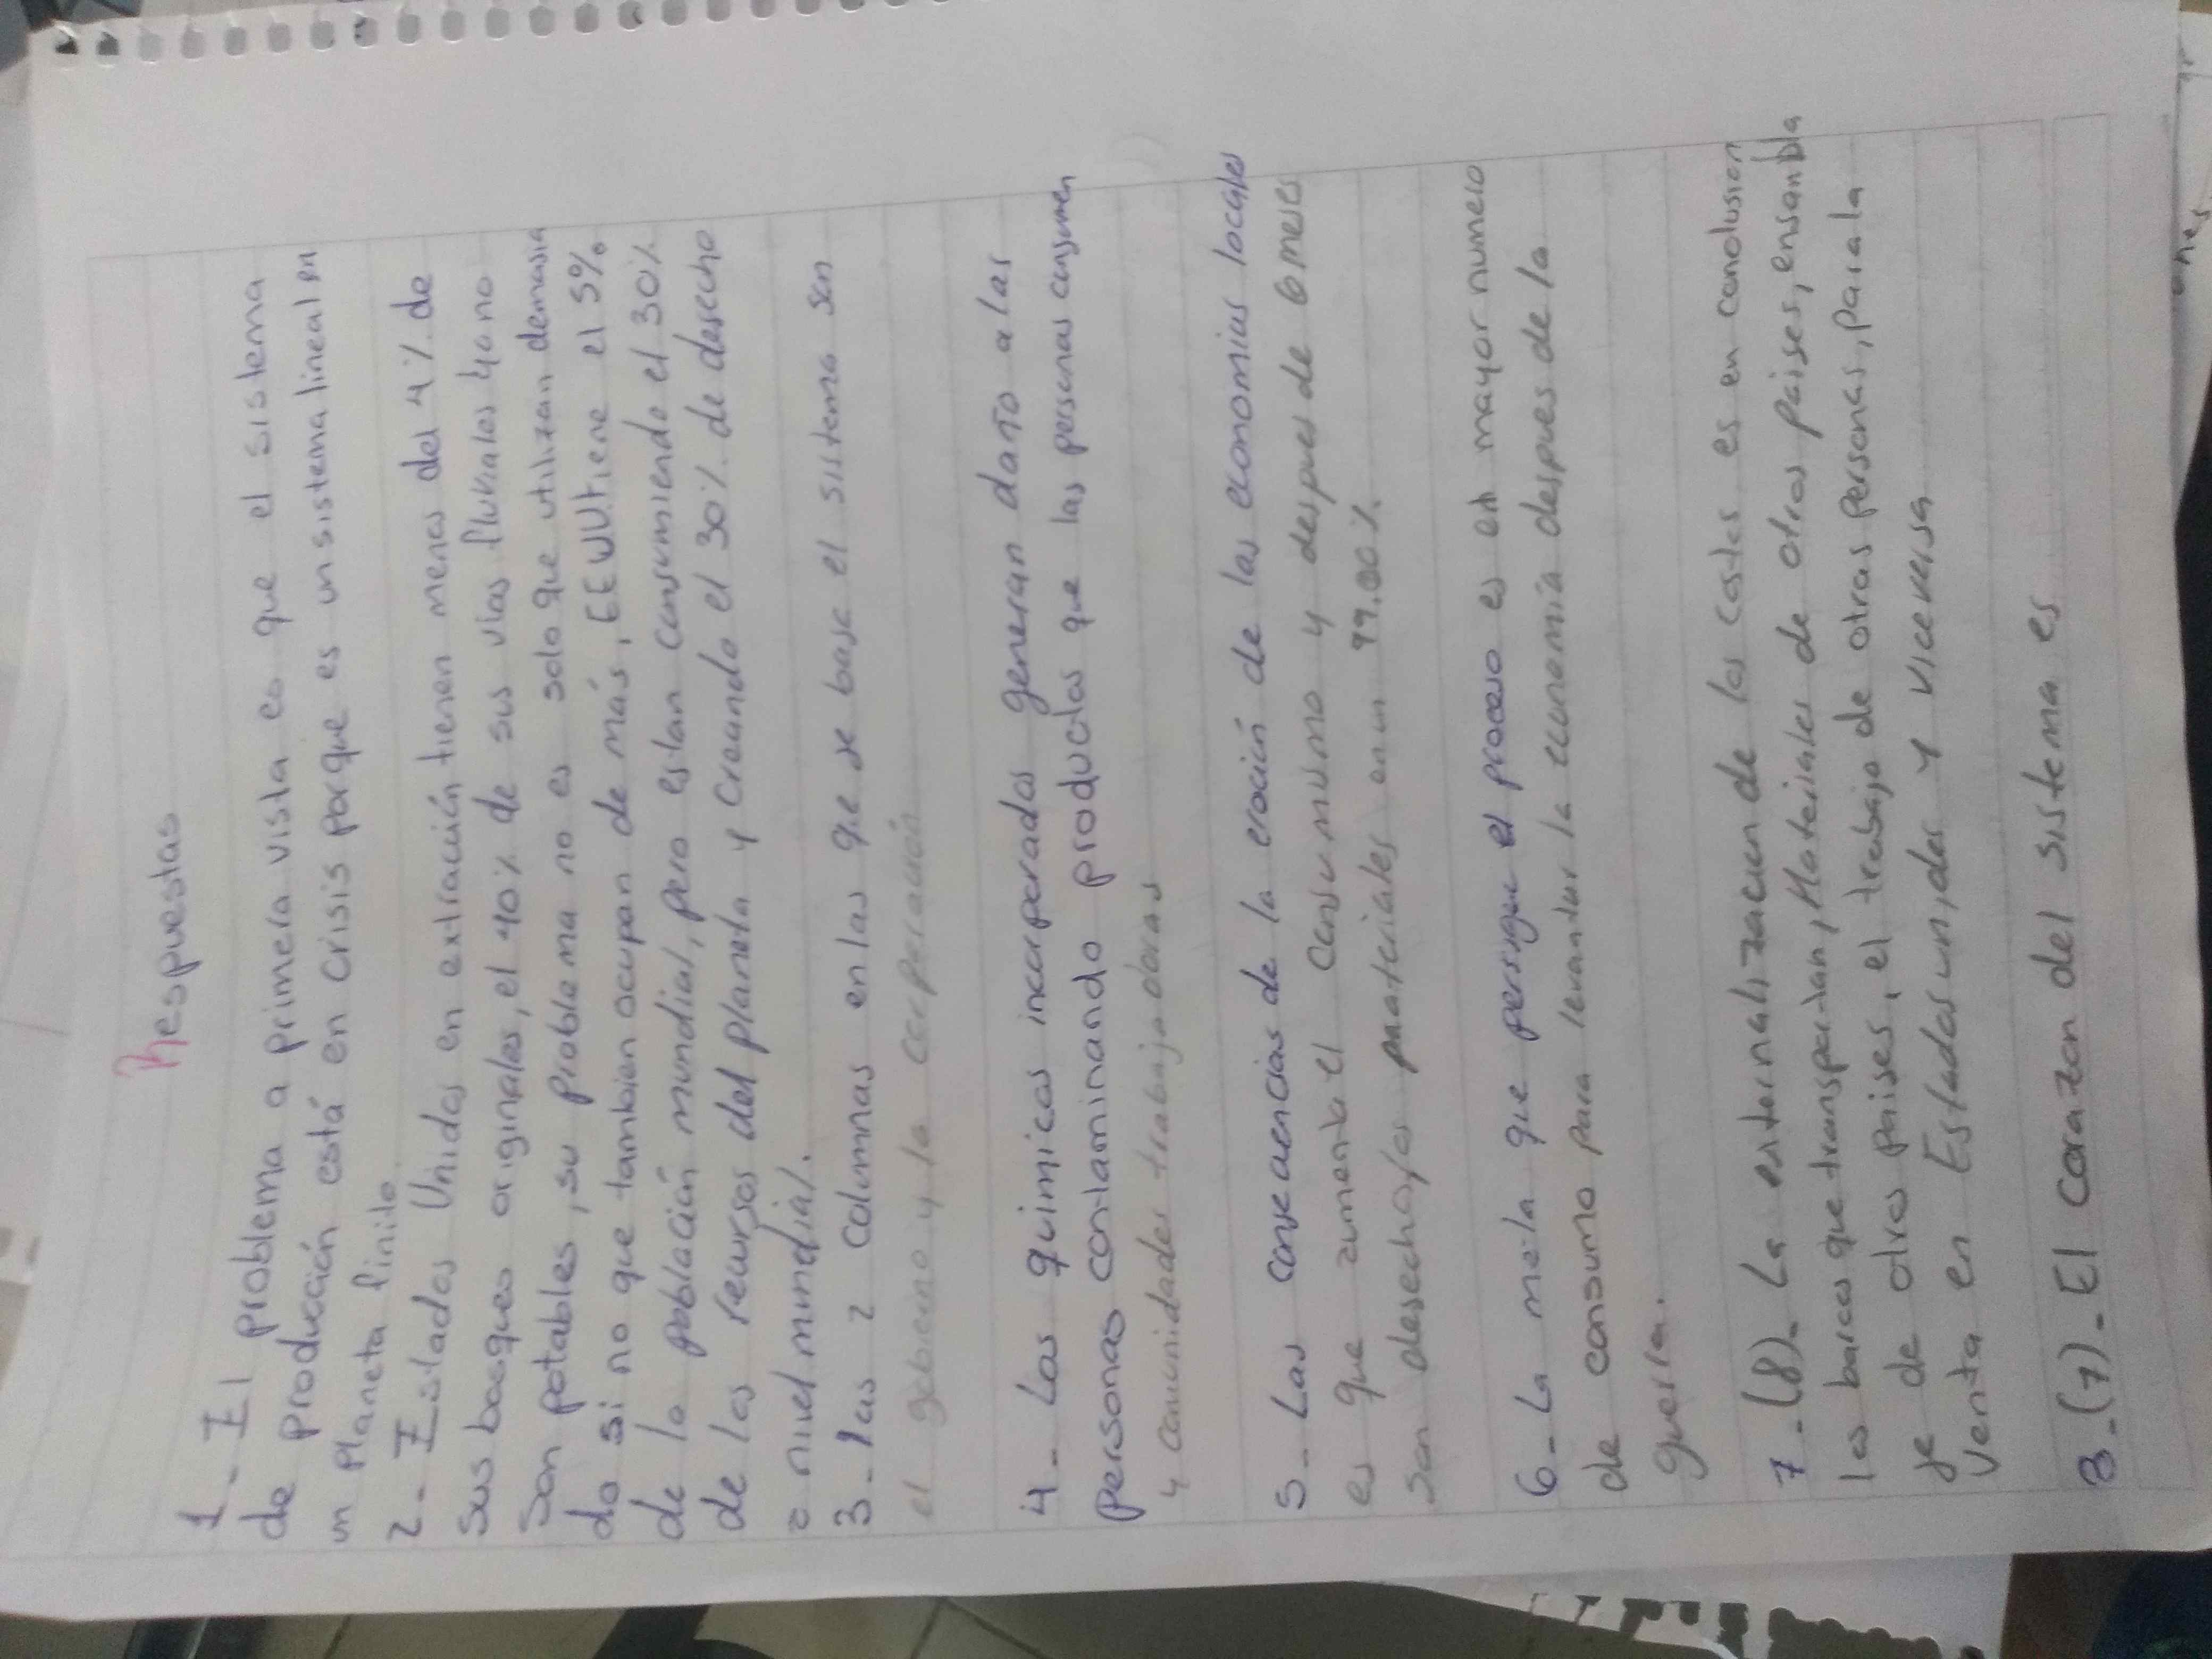 Respuestas
1_ El problema a primera vista es que el sistema
de producción está en crisis porque es un sistema lineal en
un Planeta finito.
2_ Estados Unidos en extracción tienen menos del 4% de
sus bosques originales, el 40% de sus vías fluviales ya no
son potables, su problema no es solo que utilizan demasia
do si no que tambien ocupan de más, EEUU tiene el 5%
de la población mundial, pero estan consumiendo el 30%
de los recursos del planeta y creando el 30% de desecho
a nivel mundial.
3_ las 2 columnas en las que se base el sistema son
el gobierno y la corporación
4_ Los quimicos incorporados generan daño a las
personas contaminando productos que las personas consumen
y comunidades trabajadoras
5_ Las consecuencias de la eroción de las economias locales
es que aumenta el consumismo y despues de 6 meses
son desechos los materiales en un 99.00%
6_ La meta que persigue el proceso es en mayor numero
de consumo para levantar la economía despues de la
guerra.
7_(8)_ La externalización de los costes es en conclusion
los barcos que transportan, Materiales de otros paises, ensanbla
je de otros paises, el trabajo de otras personas, para la
venta en Estados unidos y viceversa
8_(7)_ El corazon del sistema es